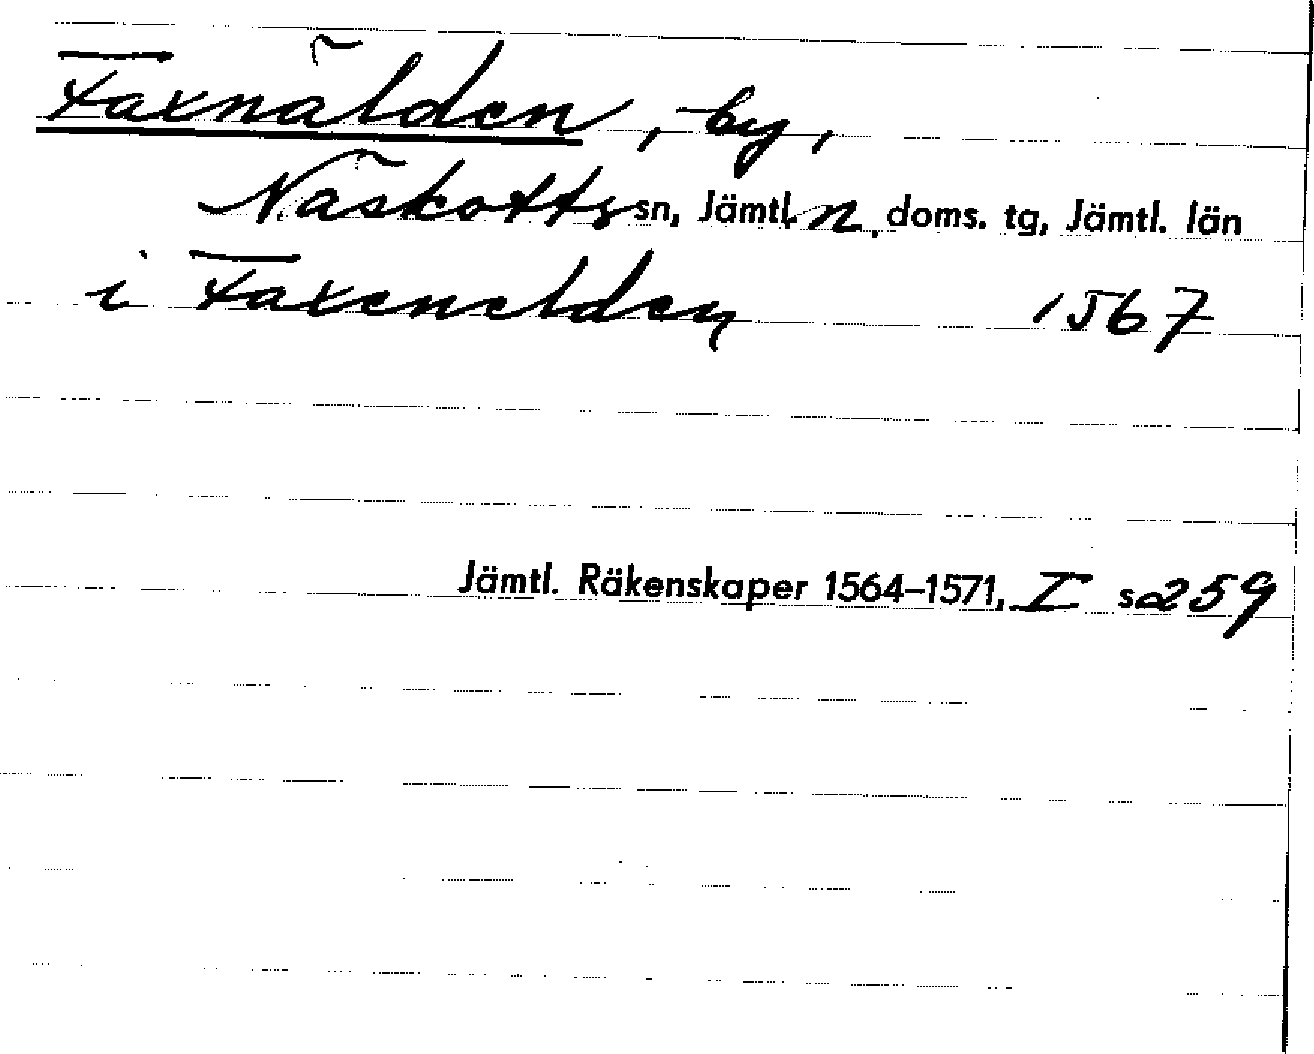 Faxnälden, by,
Näskotts sn, Jämtl. n. doms. tg, Jämtl. län
i Faxenelden 1567
Jämtl. Räkenskaper 1564–1571, I s 259